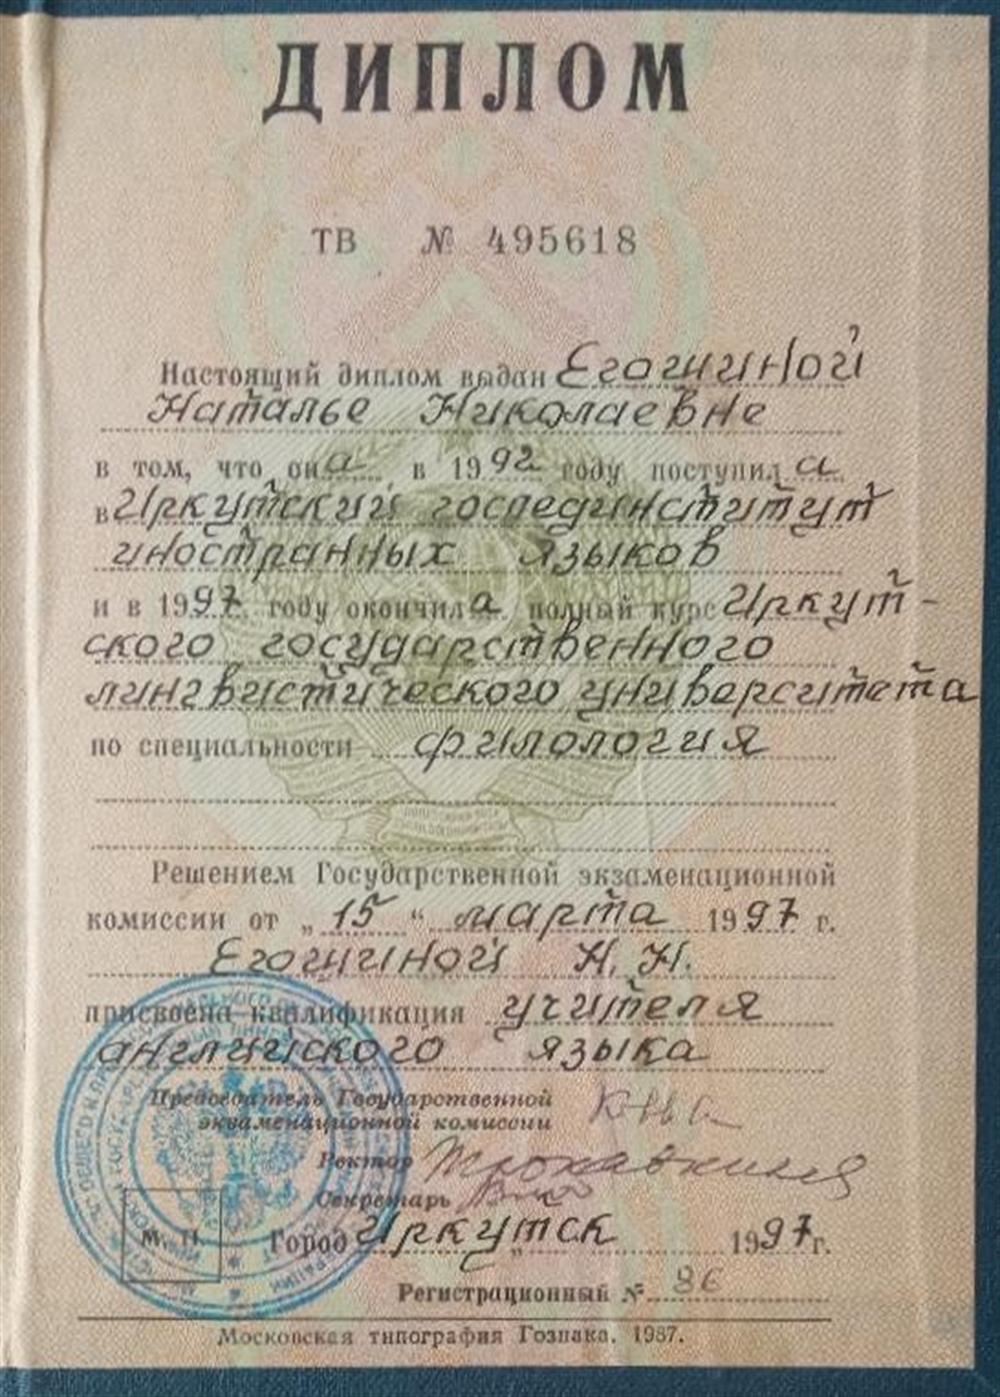 ДИПЛОМ
ТВ № 495618
Настоящий диплом выдан Егошиной
Наталье Николаевне
в том, что она в 1992 году поступила
в Иркутский госпединститут
иностранных языков
и в 1997 году окончила полный курс Иркут-
ского государственного
лингвистического университета
по специальности филология
Решением Государственной экзаменационной
комиссии от „15“ марта 1997 г.
Егошиной Н. Н.
присвоена квалификация учителя
английского языка
Председатель Государственной
экзаменационной комиссии
Ректор
Секретарь
М. П.
Город Иркутск 1997 г.
Регистрационный № 86
Московская типография Гознака. 1987.